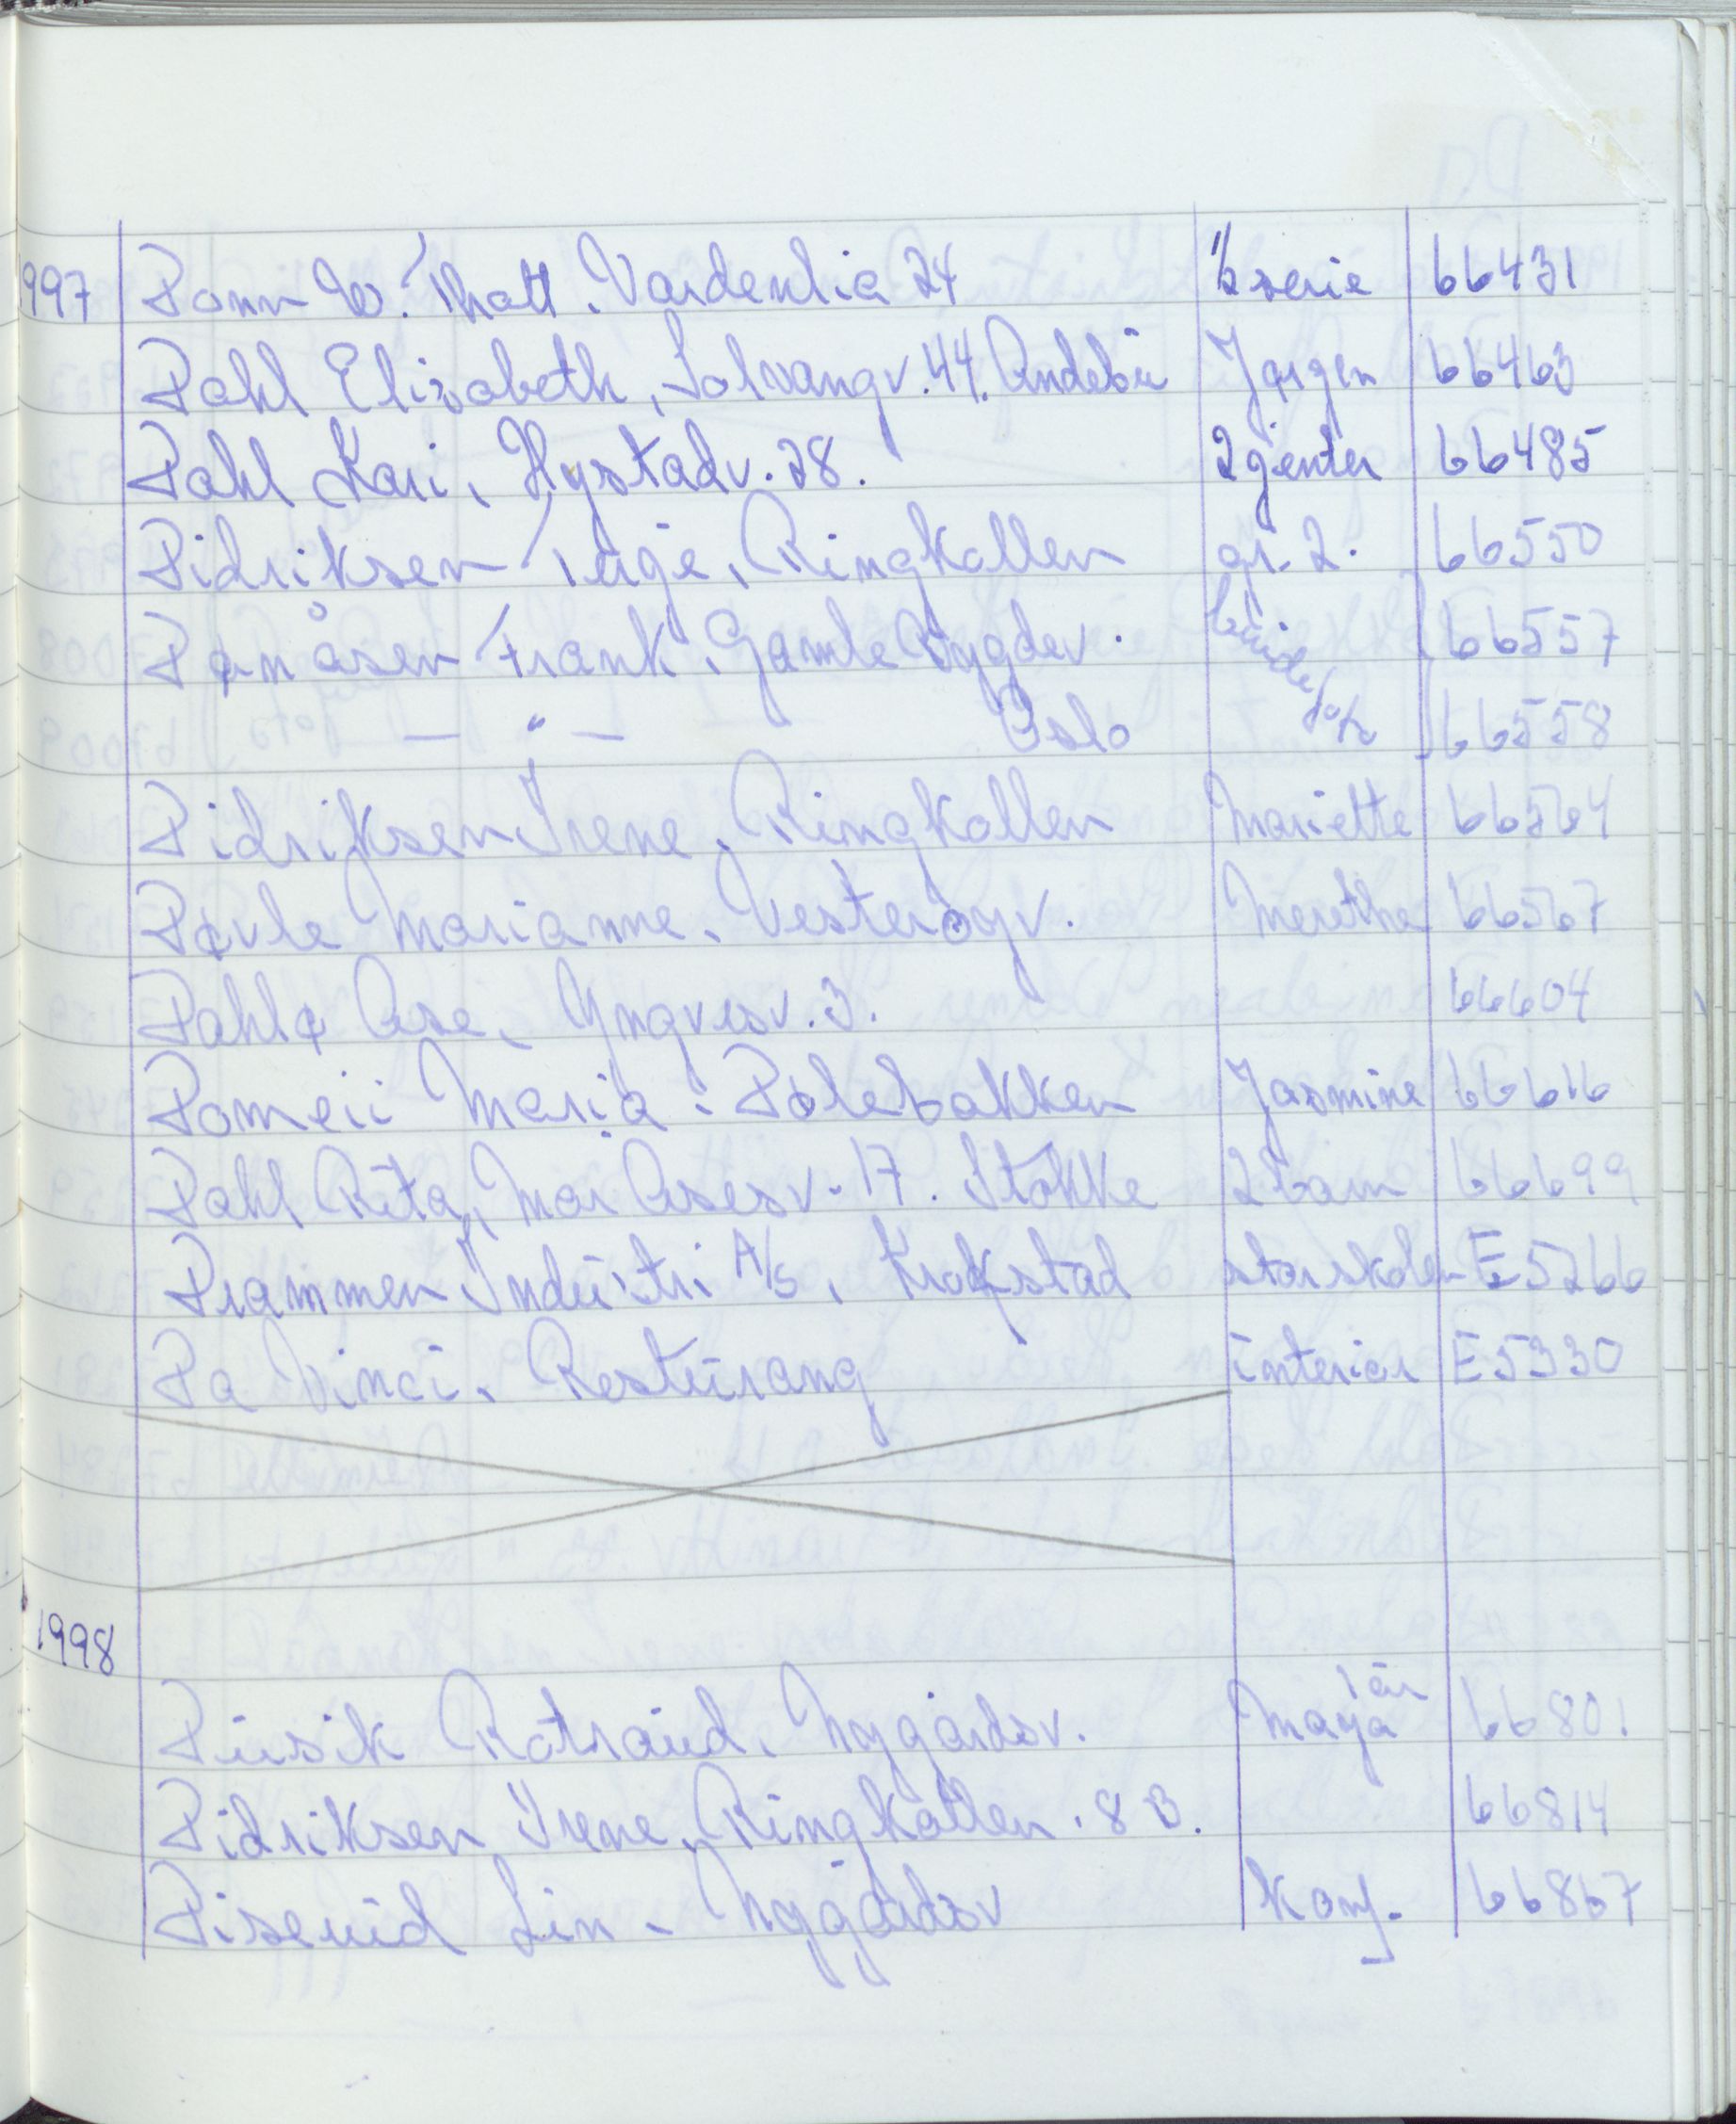 1997 Donn W. Thott. Vardenlia 24 1/2 serie 66431
Dahl Elisabeth, Solvangv. 44. Andebu Jørgen 66463
Dahl Kari, Hystadv. 28. 2 jenter 66485
Didriksen Terje, Ringkollen gr. 2. 66550
Dømåsen Frank, Gamle Bygdev. 66557
— " — Oslo 66558
Didriksen Irene, Ringkollen Mariette 66564
Døvle Marianne, Vesterøyv. Merethe 66567
Dahlø Åse, Yngvesv. 3. 66604
Domeii Maria. Dølebakken Jasmine 66616
Dahl Rita, Mor Åsesv. 17. Stokke 2 barn 66699
Drammen Industri A/S, Krokstad E5266
Da Vinci, Resturang interiør E5330
1998
1 år
Dusik Rotraud, Nygårdsv. Maya 66801
Didriksen Irene, Ringkollen. 8 B. 66814
Diserud Lin. Nygårdsv Konf. 66867